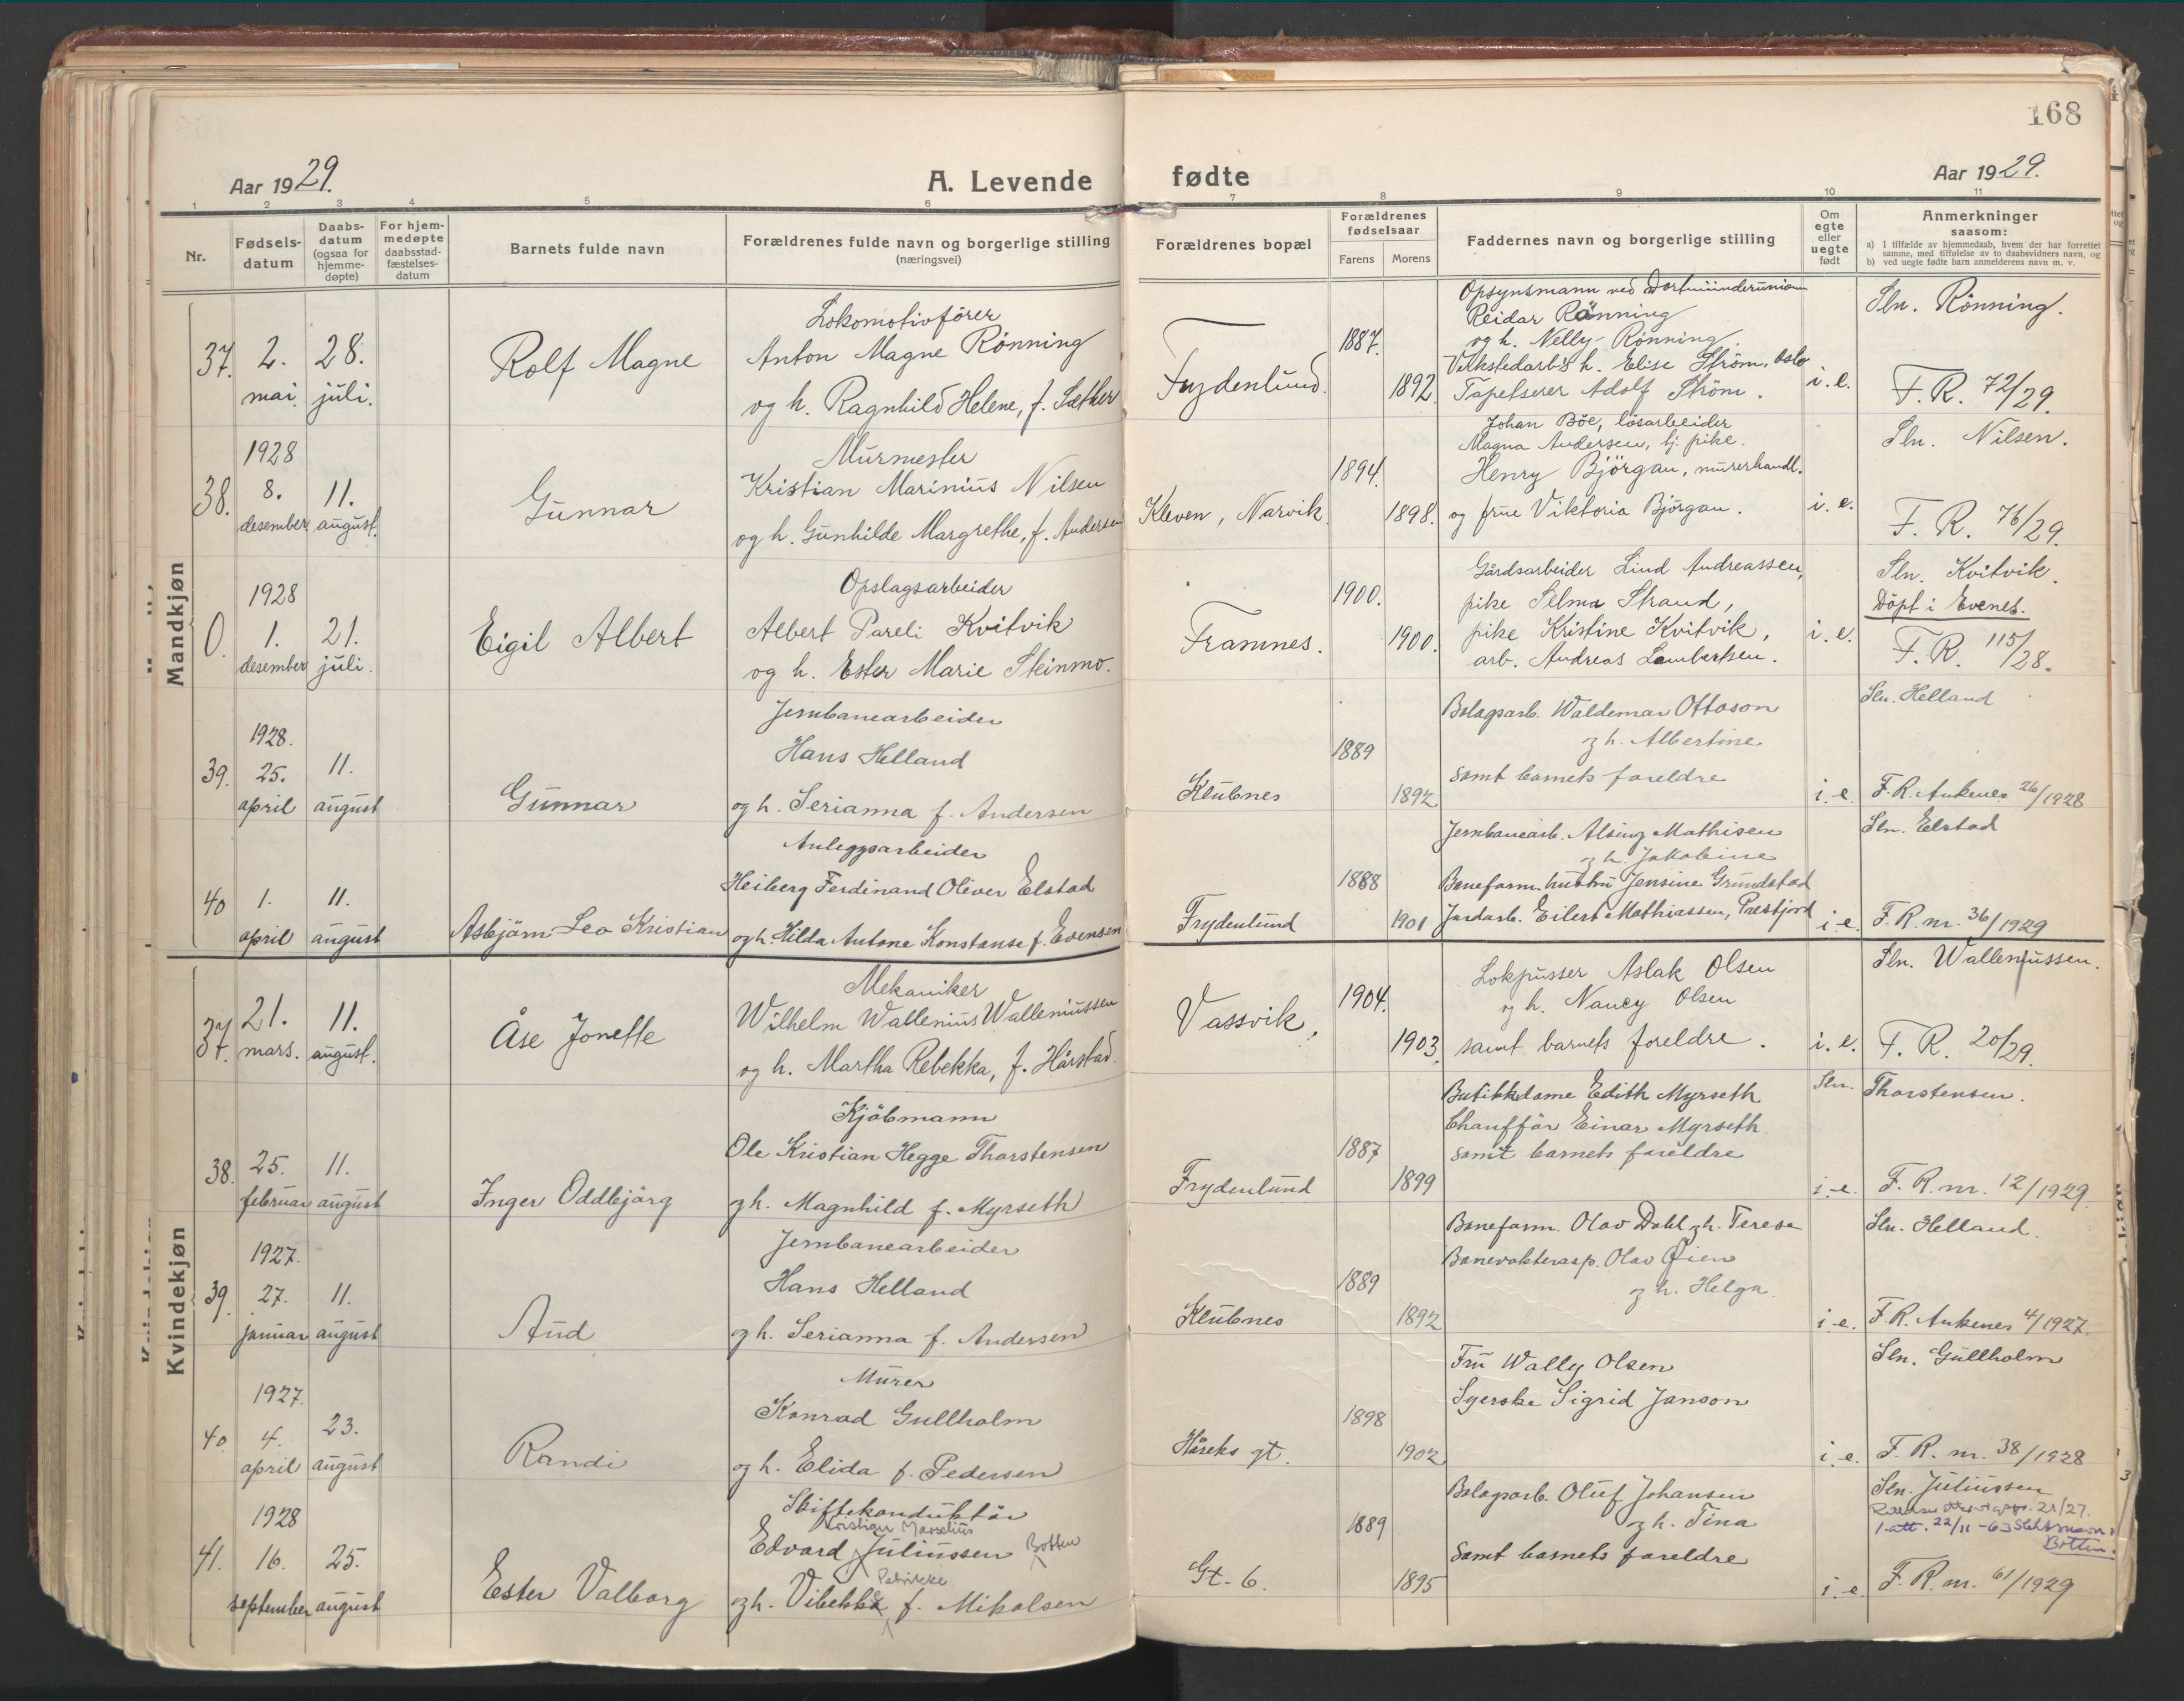 168
Aar 1929.
A. Levende
fødte
Aar 1929.
1 2 3 4 5 6 7 8 9 10 11
Nr.
Fødsels-
datum
Daabs-
datum
(ogsaa for
hjemme-
døpte)
For hjem-
medøpte
daabsstad-
fæstelses-
datum
Barnets fulde navn
Forældrenes fulde navn og borgerlige stilling
(næringsvei)
Forældrenes bopæl
Forældrenes
fødselsaar
Farens
Morens
Faddernes navn og borgerlige stilling
Om
egte
eller
uegte
født
Anmerkninger
saasom:
a) I tilfælde av hjemmedaab, hvem der har forrettet
samme, med tilføielse av to daabsvidners navn, og
b) ved uegte fødte barn anmelderens navn m. v.
Mandkjøn
37. 2. mai. 28. juli.
Rolf Magne
Lokomotivfører
Anton Magne Rönning
og h. Ragnhild Helene, f. Sæther
Frydenlund.
1887.
1892.
Opsynsmann ved Dortmünderunion
Reidar Rönning
og h. Nelly Rönning.
Verkstedarb's h. Elise Ström, Oslo
Tapetserer Adolf Ström.
i. e.
Sln. Rönning.
F. R. 72/29.
38. 1928 8. desember 11. august.
Gunnar
Murmester
Kristian Marinius Nilsen
og h. Gunhilde Margrethe, f. Andersen
Kleven, Narvik.
1894.
1898.
Johan Böe, lösarbeider
Magna Andersen, hj. pike.
Henry Björgan, murerhandl.
og frue Viktoria Björgan.
i. e.
Sln. Nilsen.
F. R. 76/29.
0. 1928 1. desember 21. juli.
Eigil Albert
Opslagsarbeider
Albert Pareli Kvitvik
og h. Ester Marie Steinmo.
Framnes.
1900.
1900.
Gårdsarbeider Lind Andreassen,
pike Selma Strand,
pike Kristine Kvitvik,
arb. Andreas Lambertsen.
i. e.
Sln. Kvitvik.
Döpt i Evenes.
F. R. 115/28.
39. 1928. 25. april 11. august
Gunnar
Jernbanearbeider
Hans Helland
og h. Serianna f. Andersen
Klubnes
1889
1892
Bolagsarb. Waldemar Ottoson
og h. Albertine
samt barnets foreldre
i. e.
Sln. Helland
F. R. Ankenes 26/1928
40 1. april 11. august
Asbjörn Leo Kristian
Anleggsarbeider
Heiberg Ferdinand Oliver Elstad
og h. Hilda Antone Konstanse f. Evensen
Frydenlund
1888
1901
Jernbanearb. Alsing Mathisen
og h. Jakobine
Baneform. hustru Jensine Grundstad
Jordarb. Eilert Mathiassen, Prestjord
i. e.
Sln. Elstad
F. R. nr. 36/1929
Kvindekjøn
37. 21. mars. 11. august.
Åse Jonette
Mekaniker
Wilhelm Wallenius Walleniussen
og h. Martha Rebekka, f. Hårstad.
Vassvik.
1904.
1903.
Lokpusser Aslak Olsen
og h. Nancy Olsen
samt barnets foreldre.
i. e.
Sln. Walleniussen.
F. R. 20/29.
38. 25. februar 11. august
Inger Oddbjörg
Kjöbmann
Ole Kristian Hegge Thorstensen
og h. Magnhild f. Myrseth
Frydenlund
1887
1899
Butikkdame Edith Myrseth
Chaufför Einar Myrseth
samt barnets foreldre
i. e.
Sln. Thorstensen.
F. R. nr. 12/1929.
39. 1927. 27. januar 11. august
Aud
Jernbanearbeider
Hans Helland
og h. Serianna f. Andersen
Klubnes
1889
1892
Baneform. Olav Dahl og h. Terese
Banevokterasp. Olav Øien
og h. Helga.
i. e.
Sln. Helland.
F. R. Ankenes 4/1927.
40. 1927. 4. april 23. august
Randi
Murer
Konrad Gullholm
og h. Elida f. Pedersen
Håreks gt.
1898
1902
Fru Wally Olsen
Syerske Sigrid Janson
i. e.
Sln. Gullholm
F. R. nr. 38/1928
41. 1928 16. september 25. august
Ester Valborg
Skiftekonduktör
Kristian Marselius
Edvard Juliussen Botten
Petrikke
og h. Vibekke f. Mikalsen
Gt. 6.
1889
1895
Bolagsarb. Oluf Johansen
og h. Tina
samt barnets foreldre
i. e.
Sln. Juliussen
1 att. 22/11-63 Slektsnavn
Botten.
F. R. nr. 61/1929